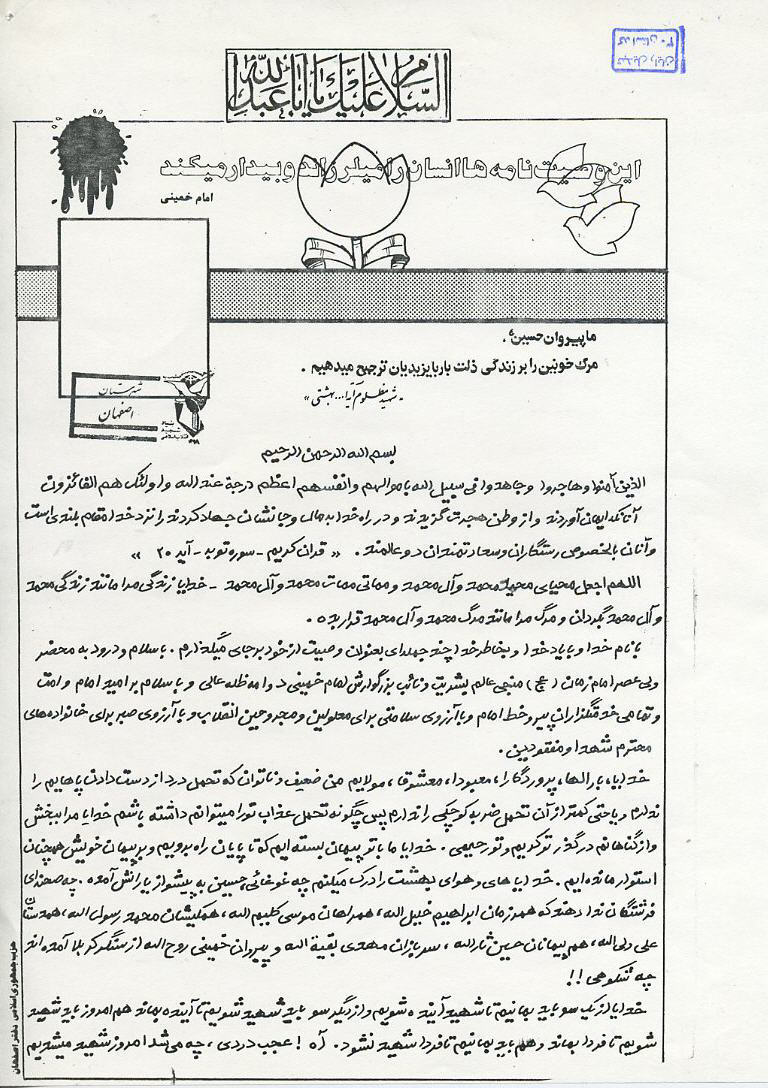 السلام علیک یا ابا عبدالله
این وصیت نامه ها انسان را میلرزاند و بیدار میکند
امام خمینی
ما پیروان حسین،
مرگ خونین را بر زندگی ذلت بار با یزیدیان ترجیح میدهیم .
شهید مظلوم آیة ا... بهشتی
شهرستان
اصفهان
بسم الله الرحمن الرحیم
الذین آمنوا و هاجروا و جاهدوا فی سبیل الله باموالهم و انفسهم اعظم درجة عند الله و اولئک هم الفائزون
آنانکه ایمان آوردند و از وطن هجرت گزیدند و در راه خدا بمال و جانشان جهاد کردند را نزد خدا مقام بلندی است
و آنان بالخصوص رستگاران و سعادتمندان دو عالمند . « قرآن کریم - سوره توبه - آیه ۲۰ »
اللهم اجعل محیای محیا محمد و آل محمد و مماتی ممات محمد و آل محمد - خدایا زندگی مرا مانند زندگی محمد
و آل محمد بگردان و مرگ مرا مانند مرگ محمد و آل محمد قرار بده .
با نام خدا و با یاد خدا و بخاطر خدا چند جمله ای بعنوان وصیت از خود بر جای میگذارم . با سلام و درود به محضر
ولی عصر امام زمان (عج) منجی عالم بشریت و نائب بزرگوارش امام خمینی دوامه ظله عالی و با سلام بر امید امام و امت
و تمامی خدمتگزاران پیرو خط امام و با آرزوی سلامتی برای معلولین و مجروحین انقلاب و با آرزوی صبر برای خانواده های
محترم شهدا و مفقودین .
خدایا، بارالها، پروردگارا، معبودا، معشوقا، مولایم من ضعیف و ناتوان که تحمل درد از دست دادن پاهایم را
ندارم و یا حتی کمتر از آن تحمل ضربه کوچکی را ندارم پس چگونه تحمل عذاب تو را میتوانم داشته باشم خدایا مرا ببخش
و از گناهانم در گذر تو کریم و تو رحیمی . خدایا ما با تو پیمان بسته ایم که تا پایان راه برویم و بر پیمان خویش همچنان
استوار مانده ایم . خدایا های و هوای بهشت را درک میکنم چه غوغائی، حسین به پیشواز یارانش آمده . چه صحنه ای
فرشتگان ندا دهند که همرزمان ابراهیم خلیل الله، همراهان موسی کلیم الله، همکیشان محمد رسول الله، همدستان
علی ولی الله، هم پیمانان حسین ثارالله، سربازان مهدی بقیة الله و پیروان خمینی روح الله از سنگر کربلا آمده اند
چه شکوهی !!
خدایا از یک سو باید بمانیم تا شهید آینده شویم و از دیگر سو باید شهید شویم تا آینده بماند هم امروز باید شهید
شویم تا فردا بماند و هم باید بمانیم تا فردا شهید نشود. آه ! عجب دردی ، چه می شد امروز شهید میشدیم
حزب جمهوری اسلامی دفتر اصفهان